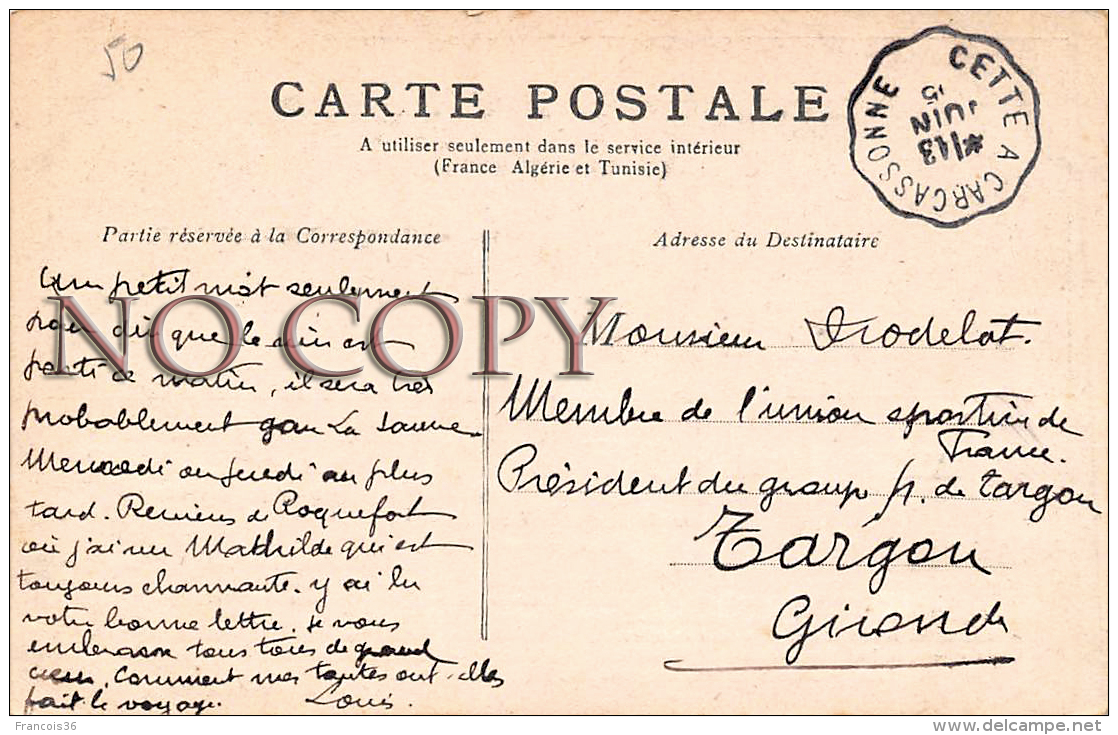 50
CARTE POSTALE
A utiliser seulement dans le service intérieur
(France Algérie et Tunisie)
CETTE A CARCASSONNE
*13
JUIN
15
Partie réservée à la Correspondance
Un petit mot seulement
pour dire que le vin est
parti ce matin, il sera très
probablement gare La Sauve
Mercredi ou jeudi au plus
tard. Reviens de Roquefort
où j'ai vu Mathilde qui est
toujours charmante. y ai lu
votre bonne lettre. je vous
embrasse tous trois de grand
cœur. Comment mes tantes ont-elles
fait le voyage. Louis.
Adresse du Destinataire
Monsieur
Membre de l'union sportive de
France.
Président du groupe p. de Targon
Targon
Gironde
NO COPY
Francois36
www.delcampe.net